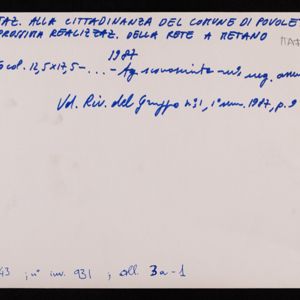 TAZ. ALLA CITTADINANZA DEL COMUNE DI POVOLE
PROSSIMA REALIZZAZ. DELLA RETE A METANO
1987
col. 12,5x17,5 - ... - Ag. sconosciuta - n°s reg.
Vd. Riv. del Gruppo n°1, 1° sem. 1987, p. 9
43 ; n° inv. 931 ; coll. 3a-1